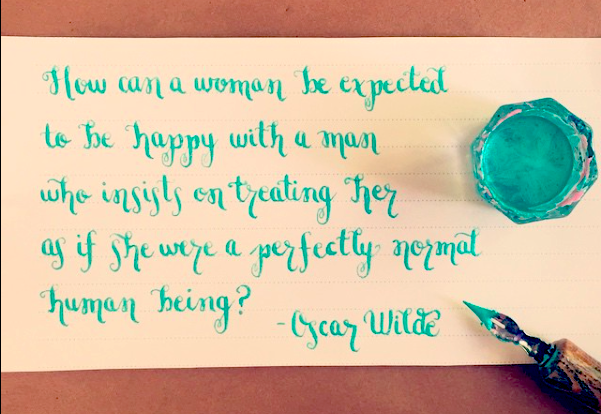 How can a woman be expected
to be happy with a man
who insists on treating her
as if she were a perfectly normal
human being?
-Oscar Wilde